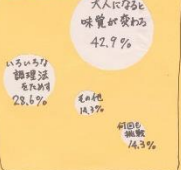 大人になると
味覚が変わる
42.9%
いろいろな
調理法
をためす
28.6%
その他
14.3%
何回も
挑戦
14.3%